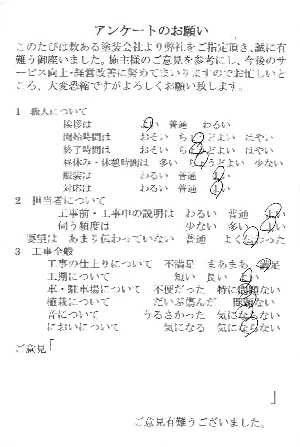 アンケートのお願い
このたびは数ある塗装会社より弊社をご指定頂き、誠に有
難う御座いました。施主様のご意見を参考にし、今後のサ
ービス向上・経営改善に努めてまいりますのでお忙しいと
ころ、大変恐縮ですがよろしくお願い致します。
1 職人について
挨拶は よい 普通 わるい
開始時間は おそい ちょうどよい はやい
終了時間は おそい ちょうどよい はやい
昼休み・休憩時間は 多い ちょうどよい 少ない
服装は わるい 普通 よい
対応は わるい 普通 よい
2 担当者について
工事前・工事中の説明は わるい 普通 よい
伺う頻度は 少ない 多い よい
要望は あまり伝わっていない 普通 よく伝わった
3 工事全般
工事の仕上りについて 不満足 まあまあ 満足
工期について 短い 長い よい
車・駐車場について 不便だった 特に問題ない
植栽について だいぶ傷んだ 問題ない
音について うるさかった 気にならない
においについて 気になる 気にならない
ご意見「
」
ご意見有難うございました。